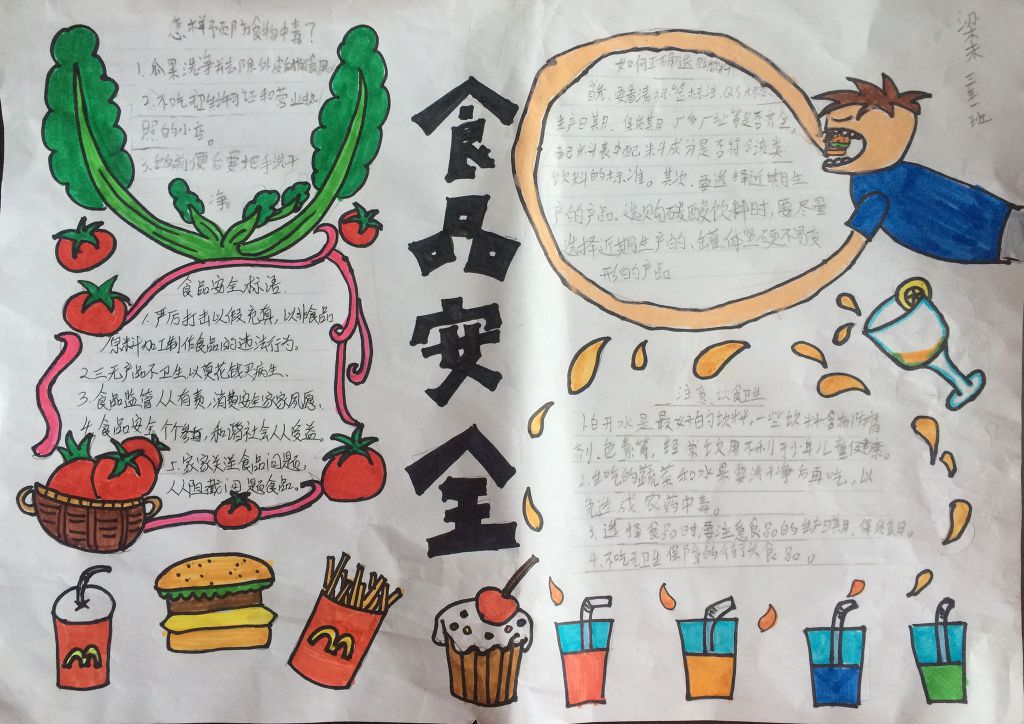 怎样预防食物中毒？
1. 瓜果洗净并去除外皮后食用
2. 不吃无卫生许可证和营业执
照的小店。
3. 饭前便后要把手洗干
净
食品安全标语
1. 严厉打击以假充真，以非食品
原料加工制作食品的违法行为。
2. 三无产品不卫生，以莫花钱买病生。
3. 食品监管人人有责，消费安全家家同愿。
4. 食品安全，和谐社会人人受益。
5. 家家关注食品问题，
人人阻截问题食品。
食品安全
梁未 三 班
如何正确选购饮料
首先，要看清标签标注，QS标志
生产日期、保质期、厂名厂址等是否齐全。
配料表中配料成分是否符合该类
饮料的标准。其次，要选择近期生
产的产品。选购碳酸饮料时，要尽量
选择近期生产的、罐体坚硬不易变
形的产品
注意饮食卫生
1. 白开水是最好的饮料，一些饮料含有防腐
剂、色素等，经常饮用不利于少年儿童健康。
2. 生吃的蔬菜和水果要洗干净后再吃，以
免造成农药中毒。
3. 选择食品时要注意食品的生产日期、保质期。
4. 不吃无卫生保障的街头食品。